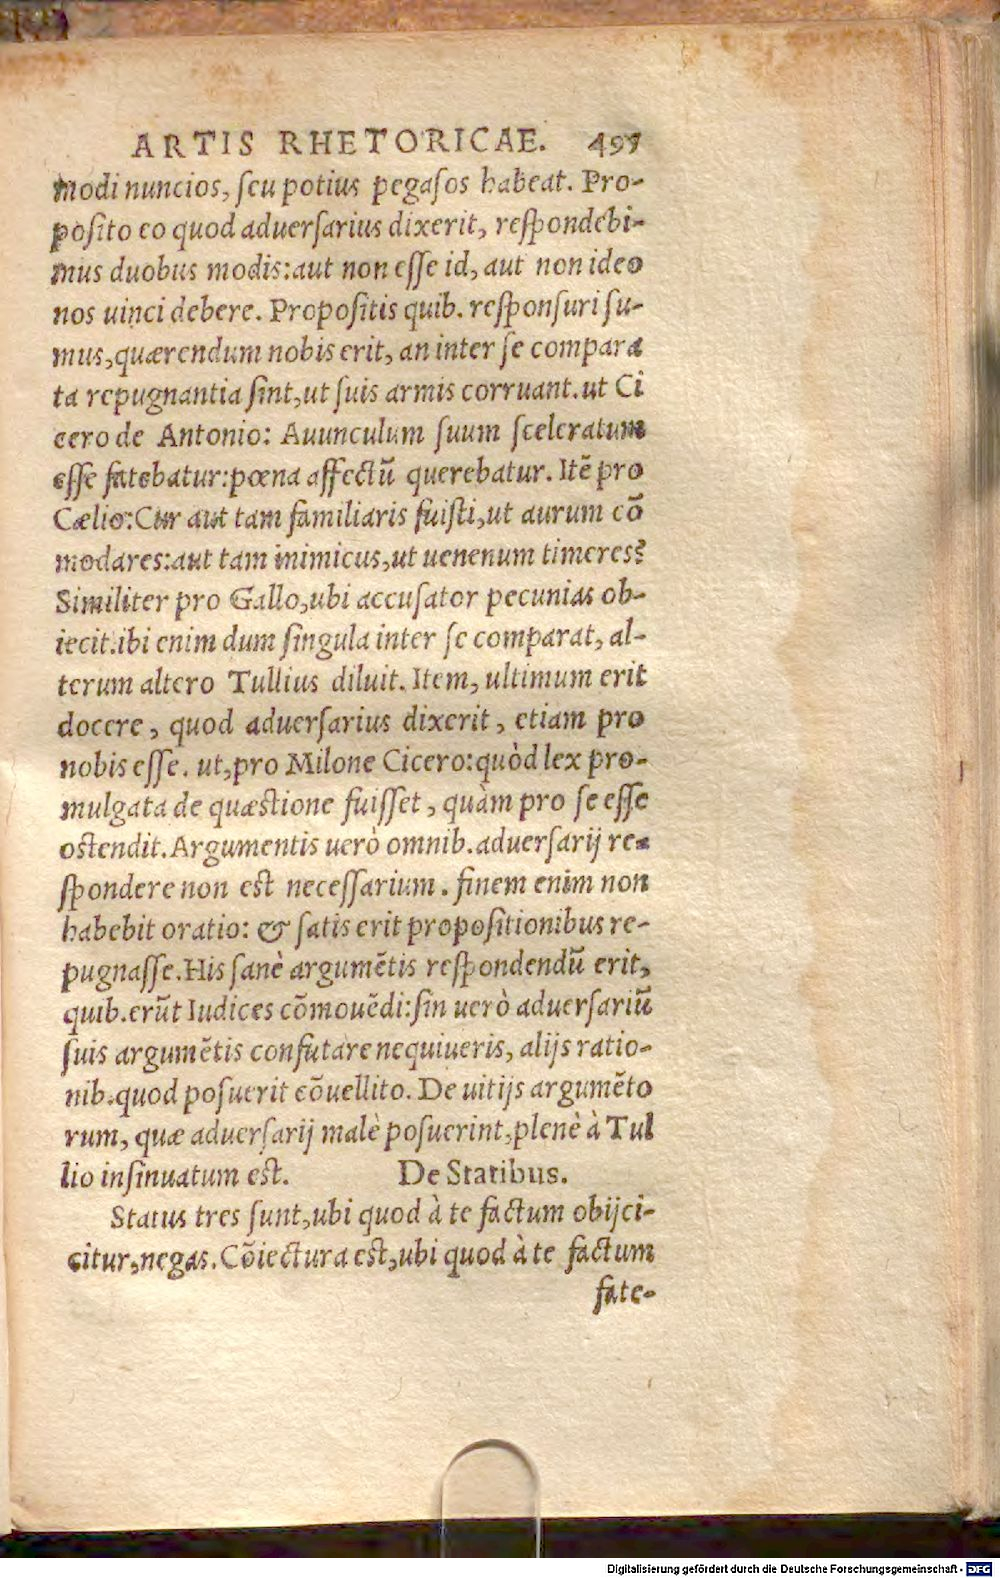 ARTIS RHETORICAE. 497
modi nuncios, seu potius pegasos habeat. Pro-
posito eo quod aduersarius dixerit, respondebi-
mus duobus modis: aut non esse id, aut non ideo
nos uinci debere. Propositis quib. responsuri su-
mus, quærendum nobis erit, an inter se compara
ta repugnantia sint, ut suis armis corruant. ut Ci
cero de Antonio: Auunculum suum sceleratum
esse fatebatur: pœna affectū querebatur. Itē pro
Cælio: Cur aut tam familiaris fuisti, ut aurum cō
modares: aut tam inimicus, ut uenenum timeres?
Similiter pro Gallo, ubi accusator pecunias ob-
iecit. ibi enim dum singula inter se comparat, al-
terum altero Tullius diluit. Item, ultimum erit
docere, quod aduersarius dixerit, etiam pro
nobis esse. ut, pro Milone Cicero: quòd lex pro-
mulgata de quæstione fuisset, quàm pro se esse
ostendit. Argumentis uerò omnib. aduersarij re-
spondere non est necessarium. finem enim non
habebit oratio: & satis erit propositionibus re-
pugnasse. His sanè argumētis respondendū erit,
quib. erūt Iudices cōmouēdi: sin uerò aduersariū
suis argumētis confutare nequiueris, alijs ratio-
nib. quod posuerit cōuellito. De uitijs argumēto
rum, quæ aduersarij malè posuerint, plenè à Tul
lio insinuatum est. De Statibus.
Status tres sunt, ubi quod à te factum obijci-
citur, negas. Cōiectura est, ubi quod à te factum
fate-
Digitalisierung gefördert durch die Deutsche Forschungsgemeinschaft - DFG